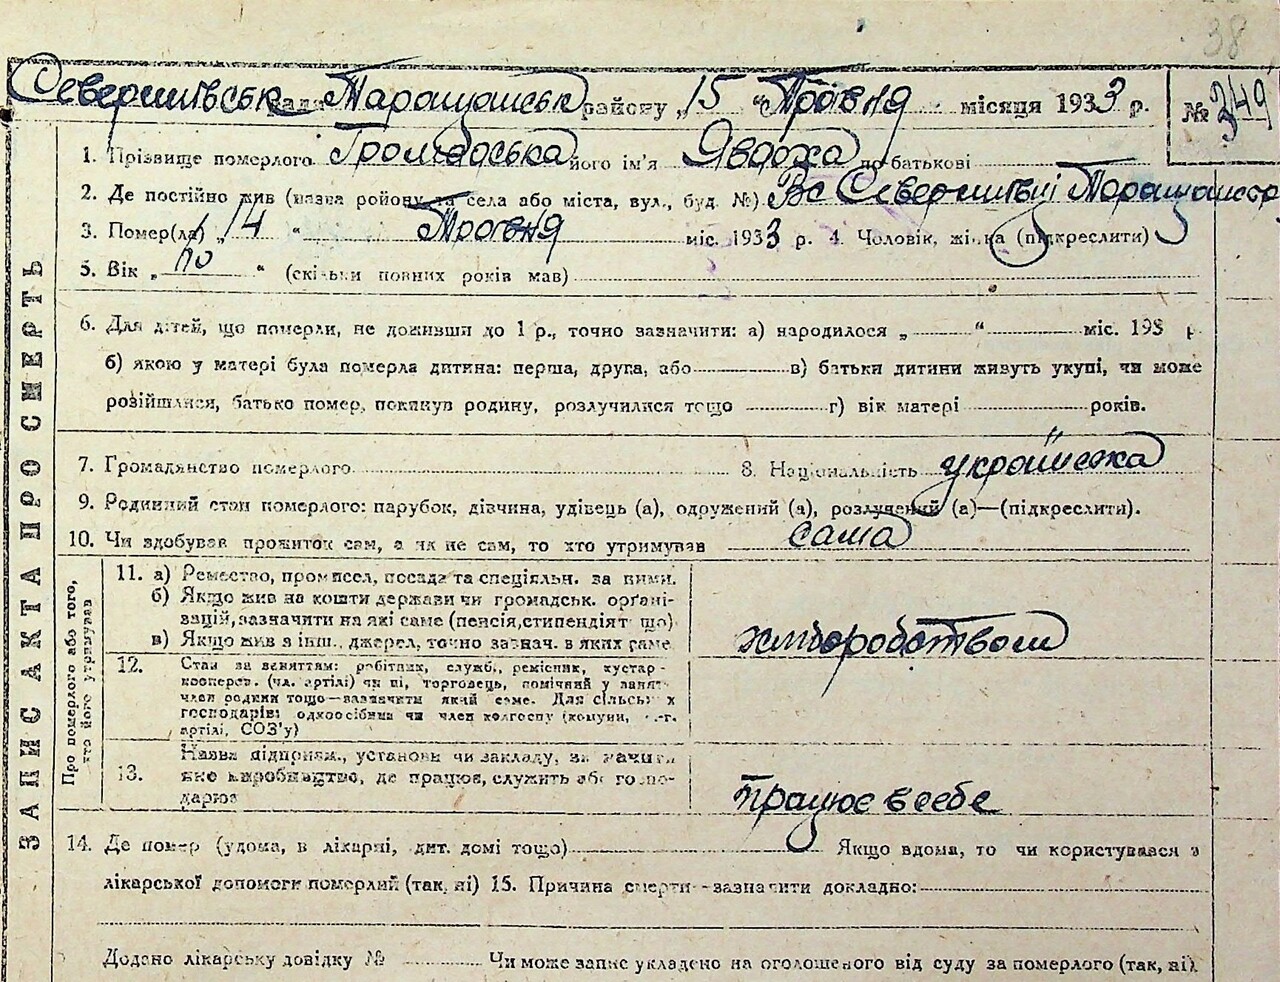 38
Северинівська рада Таращанськ району „15 “ Травня місяця 1933 р. № 349
1. Прізвище померлого Громадська його ім'я Явдоха по батькові
2. Де постійно жив (назва району та села або міста, вул., буд. №) Вс Северинівці Таращанськ
3. Помер(ла) „14 “ Травня міс. 1933 р. 4. Чоловік, жінка (підкреслити)
5. Вік „ “ (скільки повних років мав)
6. Для дітей, що померли, не доживши до 1 р., точно зазначити: а) народилося „ “ міс. 193 р.
б) якою у матері була померла дитина: перша, друга, або в) батьки дитини живуть укупі, чи може
розійшлися, батько помер, покинув родину, розлучилися тощо г) вік матері років.
7. Громадянство померлого 8. Національність українка
9. Родинний стан померлого: парубок, дівчина, удівець (а), одружений (а), розлучений (а)—(підкреслити).
10. Чи здобував прожиток сам, а як не сам, то хто утримував сама
ЗАПИС АКТА ПРО СМЕРТЬ
Про померлого або того,
хто його утримував
11. а) Ремество, промисел, посада та спеціяльн. за ними.
б) Якщо жив на кошти держави чи громадськ. орґані-
зацій, зазначити на які саме (пенсія, стипендіят що)
в) Якщо жив з інш. джерел, точно зазнач. в яких саме
хліборобством
12. Стан за заняттям: робітник, службі, ремісник, кустар-
кооперов. (чл. артілі) чи ні, торговець, помічний у занят-
член родини тощо—зазначити який саме. Для сільськ х
господарів: одноосібник чи член колгоспу (комуни, с.-г.
артілі, СОЗ'у)
13. Назва підприєм., установи чи закладу, зазначити
яке виробництво, де працює, служить або госпо-
дарює
працює в себе
14. Де помер (удома, в лікарні, дит. домі тощо) Якщо вдома, то чи користувався з
лікарської допомоги померлий (так, ні) 15. Причина смерти—зазначити докладно:
Додано лікарську довідку № Чи може запис укладено на оголошеного від суду за померлого (так, ні).